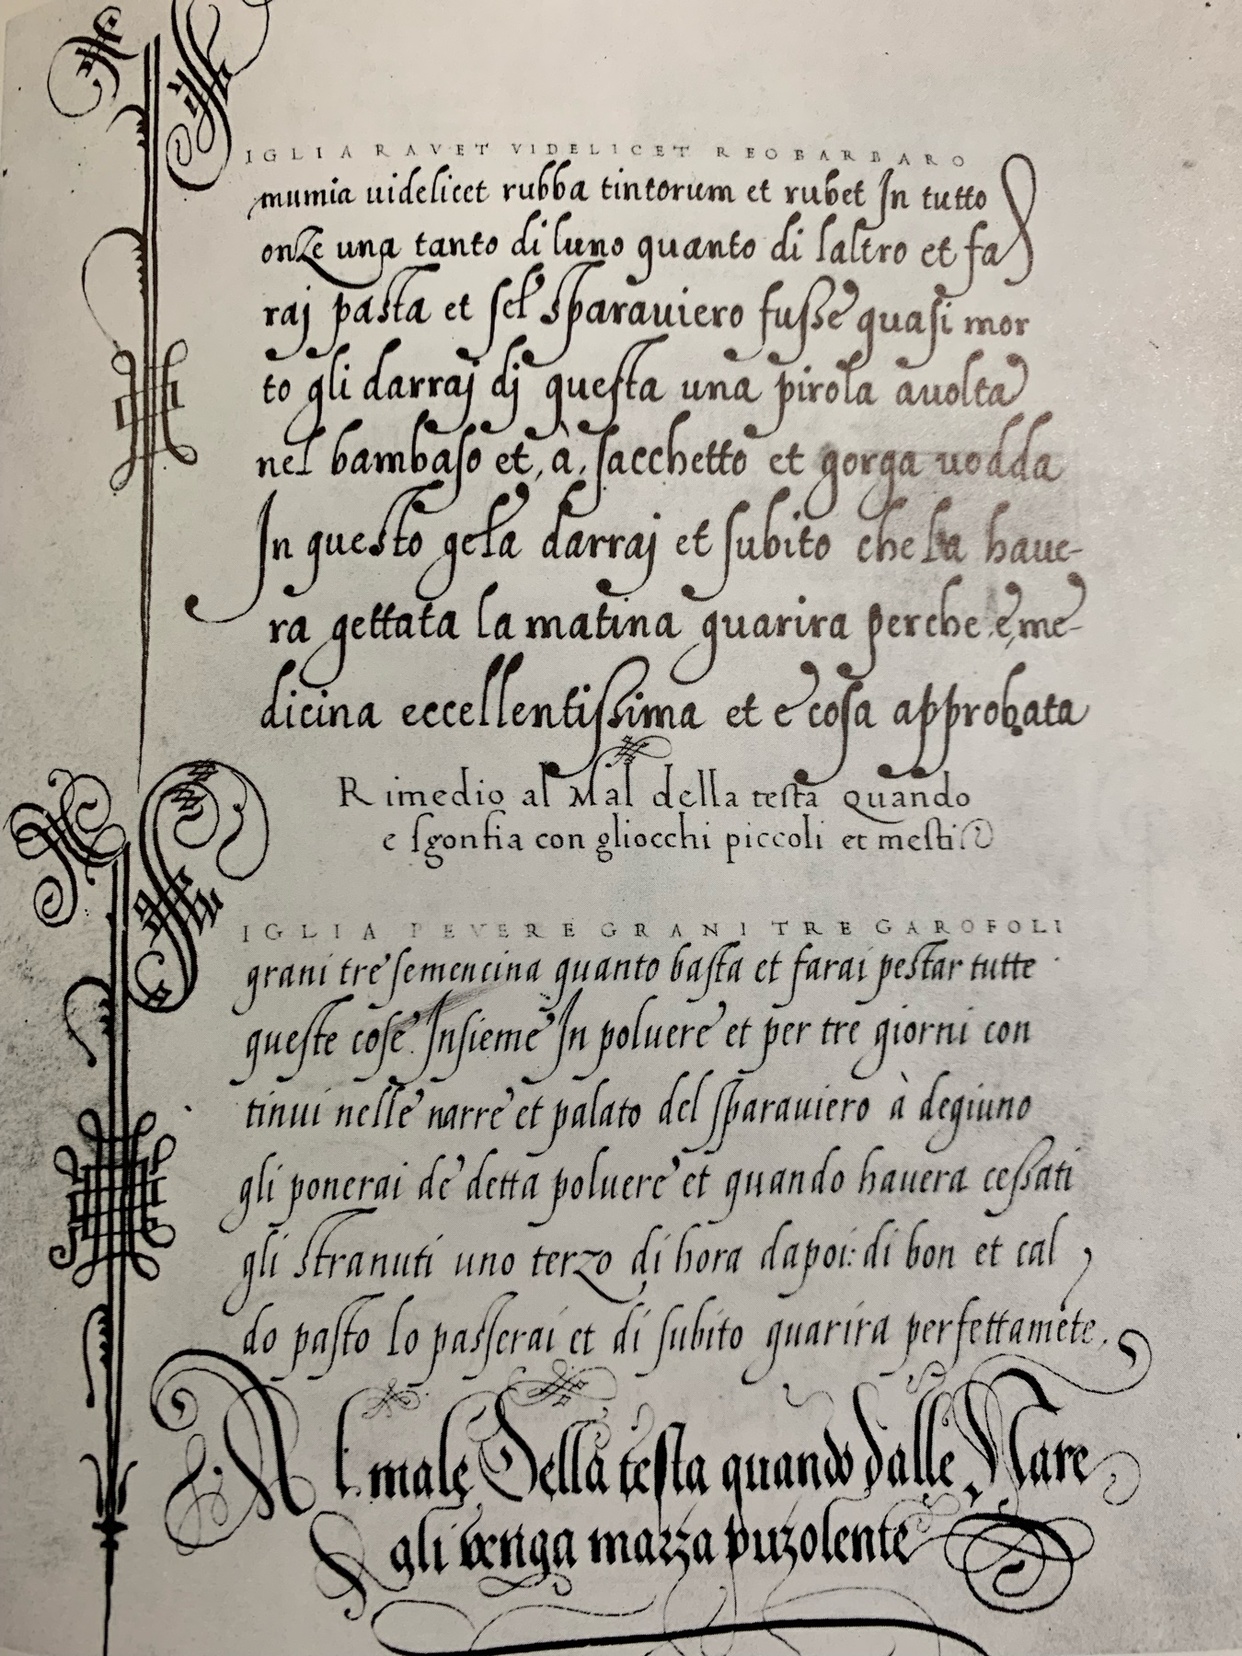 PIGLIA RAVET VIDELICET REOBARBARO
mumia uidelicet rubba tintorum et rubet In tutto
onze una tanto di luno quanto di laltro et fa
raj pasta et sel sparauiero fusse quasi mor
to gli darraj dj questa una pirola auolta
nel bambaso et, à, sacchetto et gorga uodda
In questo gela darraj et subito che la haue-
ra gettata la matina guarira perche e, me-
dicina eccellentissima et e cosa approbata
Rimedio al Mal della testa Quando
e sgonfia con gliocchi piccoli et mesti
PIGLIA PEVERE GRANI TRE GAROFOLI
grani tre semencina quanto basta et farai pestar tutte
queste cose Insieme In poluere et per tre giorni con
tinui nelle narre et palato del sparauiero à degiuno
gli ponerai de detta poluere et quando hauera cessati
gli stranuti uno terzo di hora dapoi: di bon et cal
do pasto lo passerai et di subito guarira perfettamēte.
Al male Della testa quando dalle Nare
gli venga marza puzolente